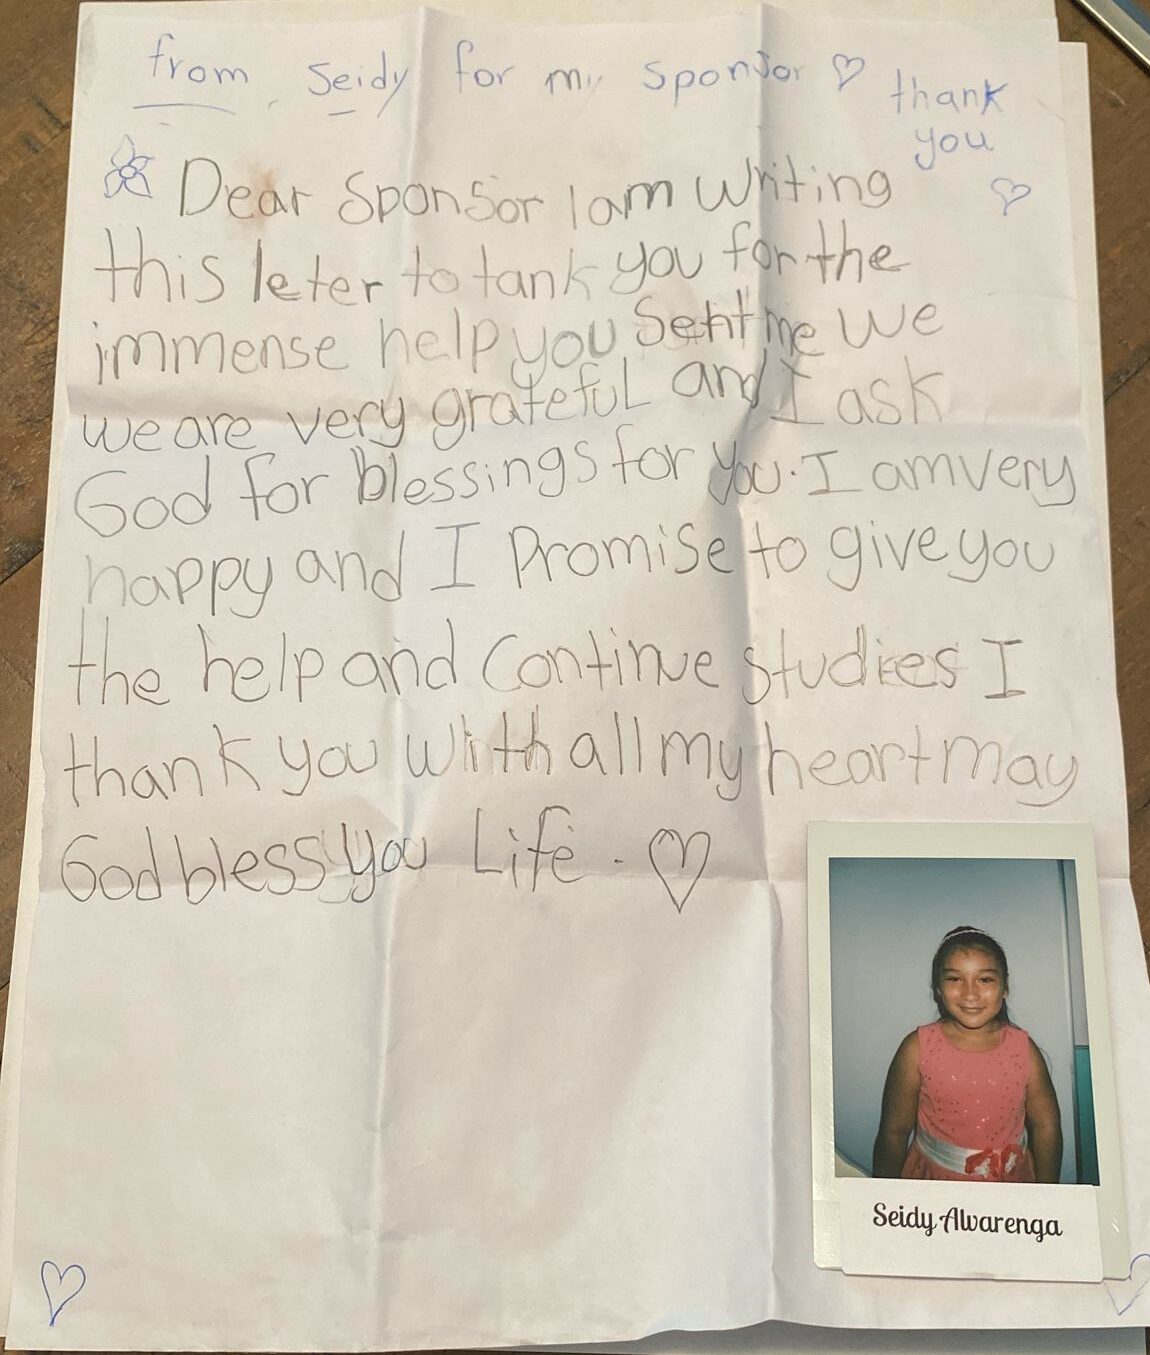 from Seidy for my sponsor
thank
you
Dear Sponsor I am writing
this leter to tank you for the
immense help you Sent me We
we are very grateful and I ask
God for blessings for you. I am very
happy and I Promise to give you
the help and Continue studies I
thank you With all my heart may
God bless you Life.
Seidy Alvarenga